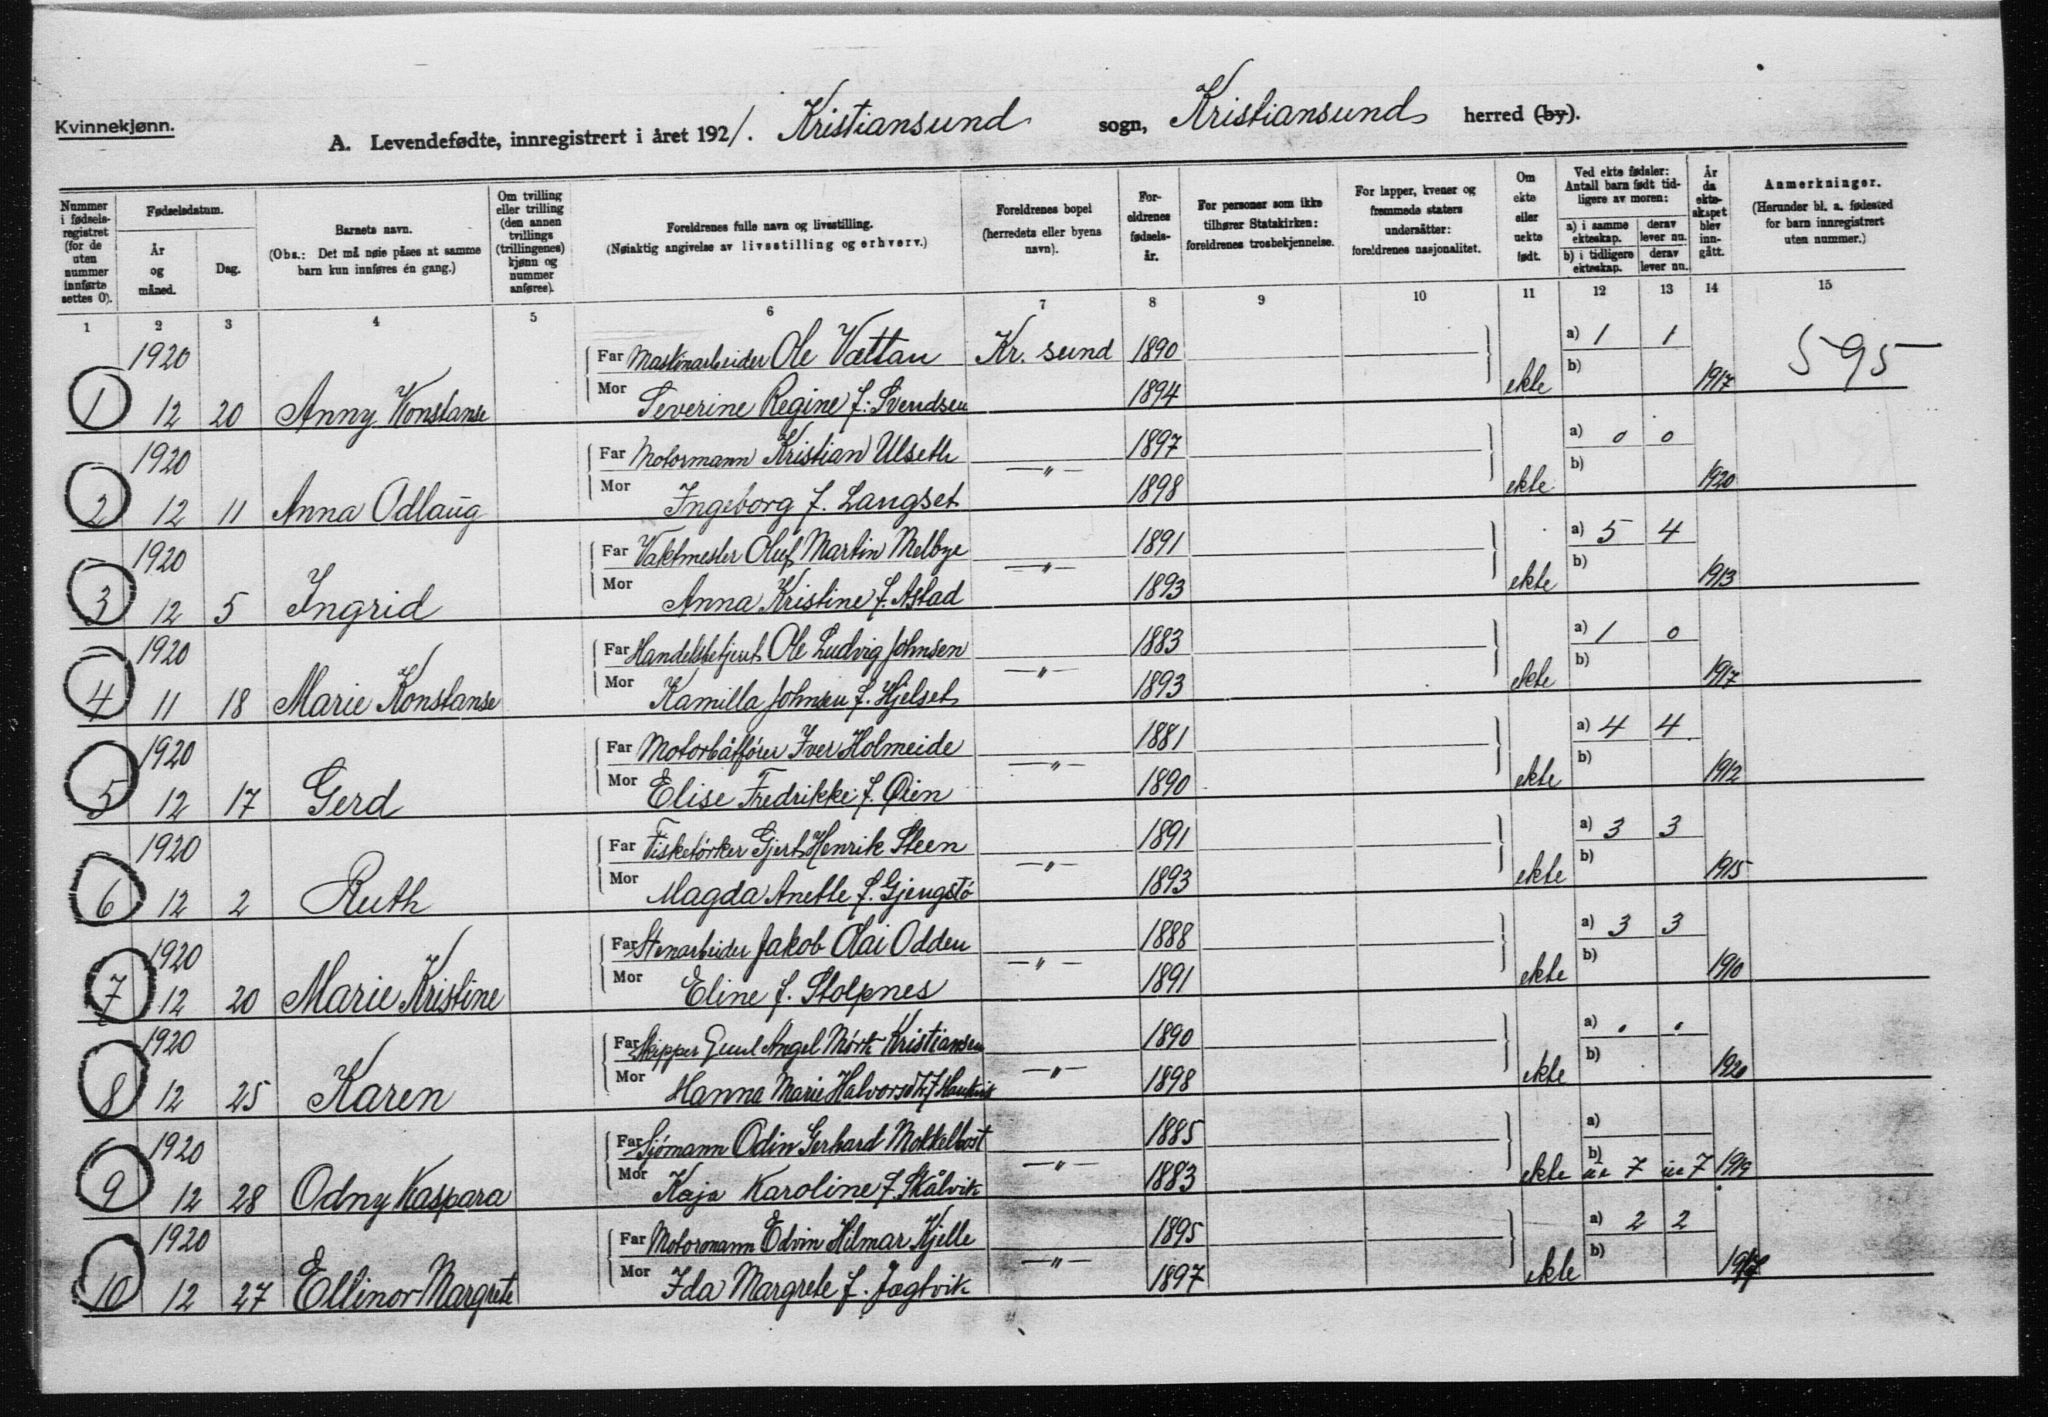 Kvinnekjønn.
A. Levendefødte, innregistrert i året 1921. Kristiansund sogn, Kristiansund herred (by).
Nummer i fødselsregistret (for de uten nummer innførte settes 0).
Fødselsdatum.
År og måned.
Dag.
Barnets navn.
(Obs.: Det må nøie påses at samme barn kun innføres én gang.)
Om tvilling eller trilling (den annen tvillings (trillingenes) kjønn og nummer anføres).
Foreldrenes fulle navn og livsstilling.
(Nøiaktig angivelse av livsstilling og erhverv.)
Foreldrenes bopel (herredets eller byens navn).
Foreldrenes fødselsår.
For personer som ikke tilhører Statskirken: foreldrenes trosbekjennelse.
For lapper, kvener og fremmede staters undersåtter: foreldrenes nasjonalitet.
Om ekte eller uekte født.
Ved ekte fødsler: Antall barn født tidligere av moren:
a) i samme ekteskap. derav lever nu.
b) i tidligere ekteskap. derav lever nu.
År da ekteskapet blev inngått.
Anmerkninger.
(Herunder bl. a. fødested for barn innregistrert uten nummer.)
1 2 3 4 5 6 7 8 9 10 11 12 13 14 15
1920 Far Maskinarbeider Ole Vættan Kr. sund 1890 a) 1 1 595
1 12 20 Anny Konstanse Mor Severine Regine f. Svendsen 1894 ekte b) 1917
1920 Far Motormann Kristian Ulseth —"— 1897 a) 0 0
2 12 11 Anna Odlaug Mor Ingeborg f. Langset 1898 ekte b) 1920
1920 Far Vaktmester Oluf Martin Melbye —"— 1891 a) 5 4
3 12 5 Ingrid Mor Anna Kristine f. Astad 1893 ekte b) 1913
1920 Far Handelsbetjent Ole Ludvig Johnsen —"— 1883 a) 1 0
4 11 18 Marie Konstanse Mor Kamilla Johnsen f. Hjelset 1893 ekte b) 1917
1920 Far Motorbåtfører Iver Holmeide —"— 1881 a) 4 4
5 12 17 Gerd Mor Elise Fredrikke f. Øien 1890 ekte b) 1912
1920 Far Fisketørker Gjert Henrik Steen —"— 1891 a) 3 3
6 12 2 Ruth Mor Magda Anette f. Gjengstø 1893 ekte b) 1915
1920 Far Stenarbeider Jakob Olai Odden —"— 1888 a) 3 3
7 12 20 Marie Kristine Mor Eline f. Stolpnes 1891 ekte b) 1910
1920 Far Skipper Angel Kristiansen —"— 1890 a) . .
8 12 25 Karen Mor Hanna Marie 1898 ekte b) 1920
1920 Far Sjømann Odin Gerhard —"— 1885 a)
9 12 28 Odny Kaspara Mor Kaja Karoline f. Skålvik 1883 ekte b) 7 7 1919
1920 Far Motormann Edvin Hilmar Kjelle —"— 1895 a) 2 2
10 12 27 Ellinor Margrete Mor Ida Margrete f. Jægtvik 1897 ekte b)